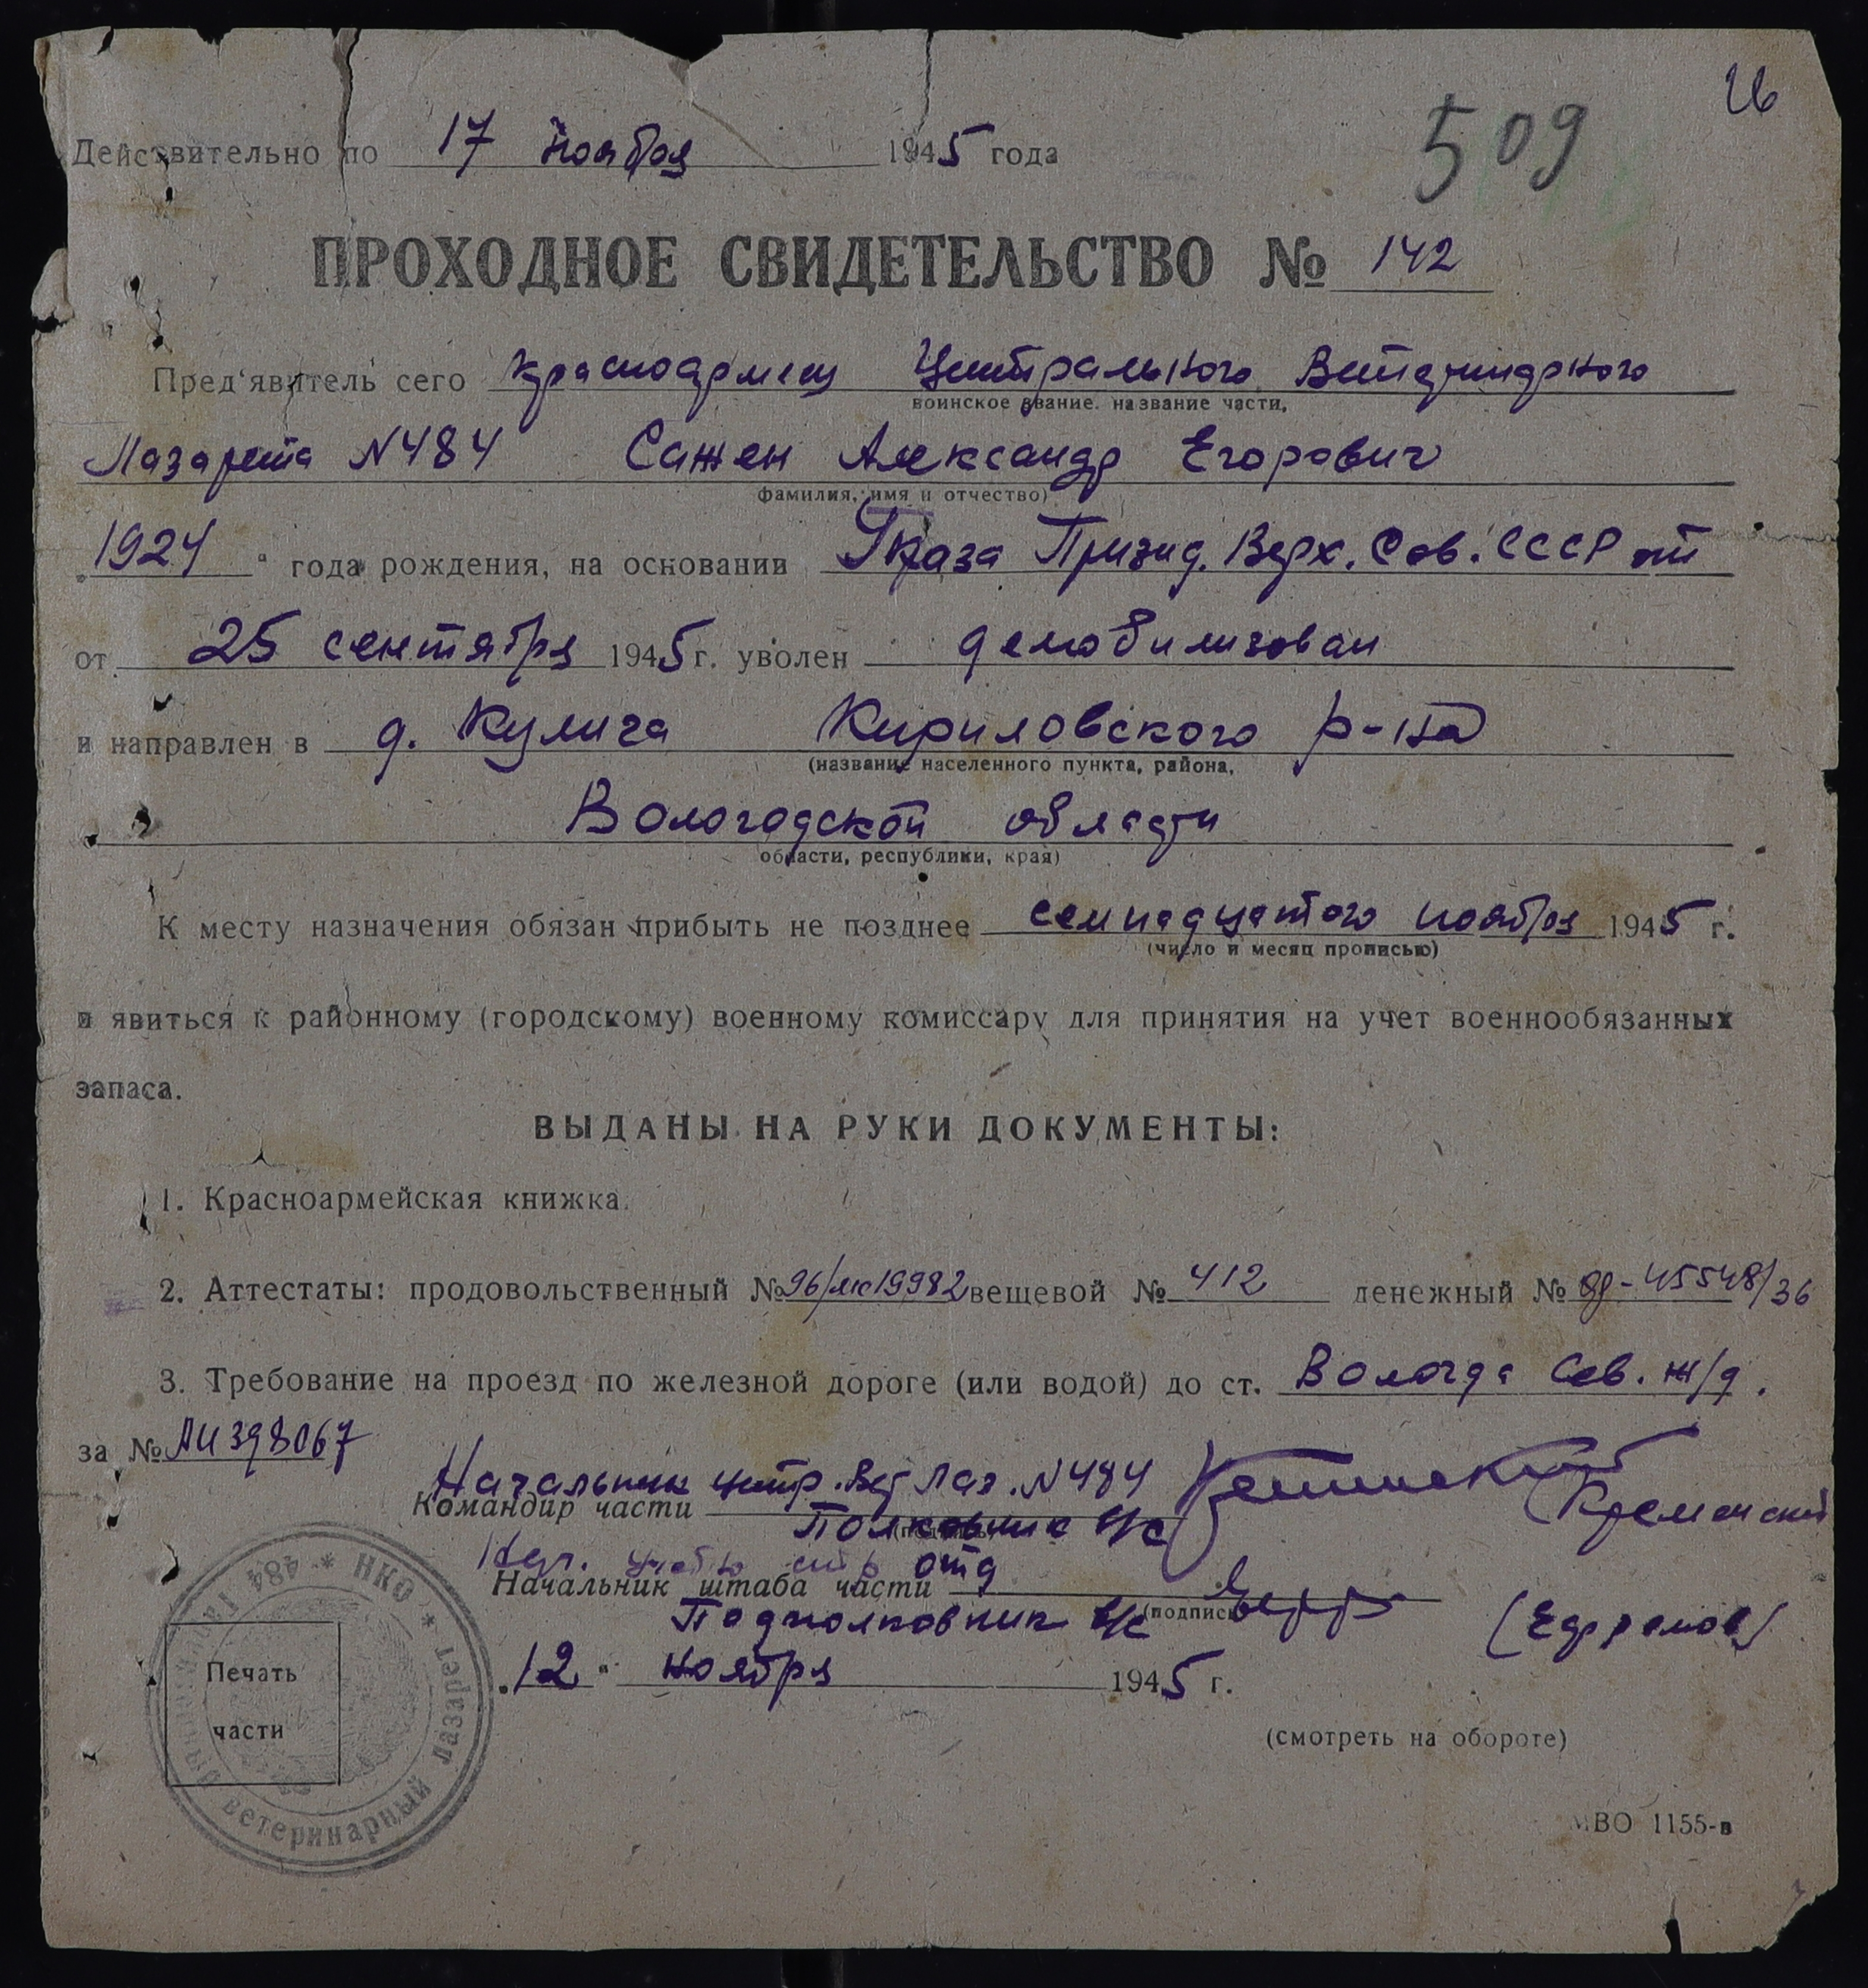 26
509
Действительно по 17 ноября 1945 года
ПРОХОДНОЕ СВИДЕТЕЛЬСТВО № 142
Пред'явитель сего красноармеец Центрального Ветеринарного
воинское звание. название части,
Лазарета N484 Сажен Александр Егорович
фамилия, имя и отчество)
"1924" года рождения, на основании Указа Призид. Верх. Сов. СССР от
от 25 сентября 1945 г. уволен демобилизован
и направлен в д. Кулига Кириловского р-на
(название населенного пункта, района,
Вологодской области
области, республики, края)
К месту назначения обязан прибыть не позднее семнадцатого ноября 1945 г.
(число и месяц прописью)
и явиться к районному (городскому) военному комиссару для принятия на учет военнообязанных
запаса.
ВЫДАНЫ НА РУКИ ДОКУМЕНТЫ:
1. Красноармейская книжка.
2. Аттестаты: продовольственный № 96/мс19982 вещевой № 412 денежный № яд-45548/36
3. Требование на проезд по железной дороге (или водой) до ст. Вологда Сев. ж/д.
за № АИ398067
Начальник центр. Вет Лаз. N484
Командир части (Кременской)
Полковник в/с
Нач. отд
Начальник штаба части
(подпись)
Подполковник в/с (Ефремов)
"12" ноября 1945 г.
Печать
части
НКО * ветеринарный лазарет * 484
(смотреть на обороте)
МВО 1155-в